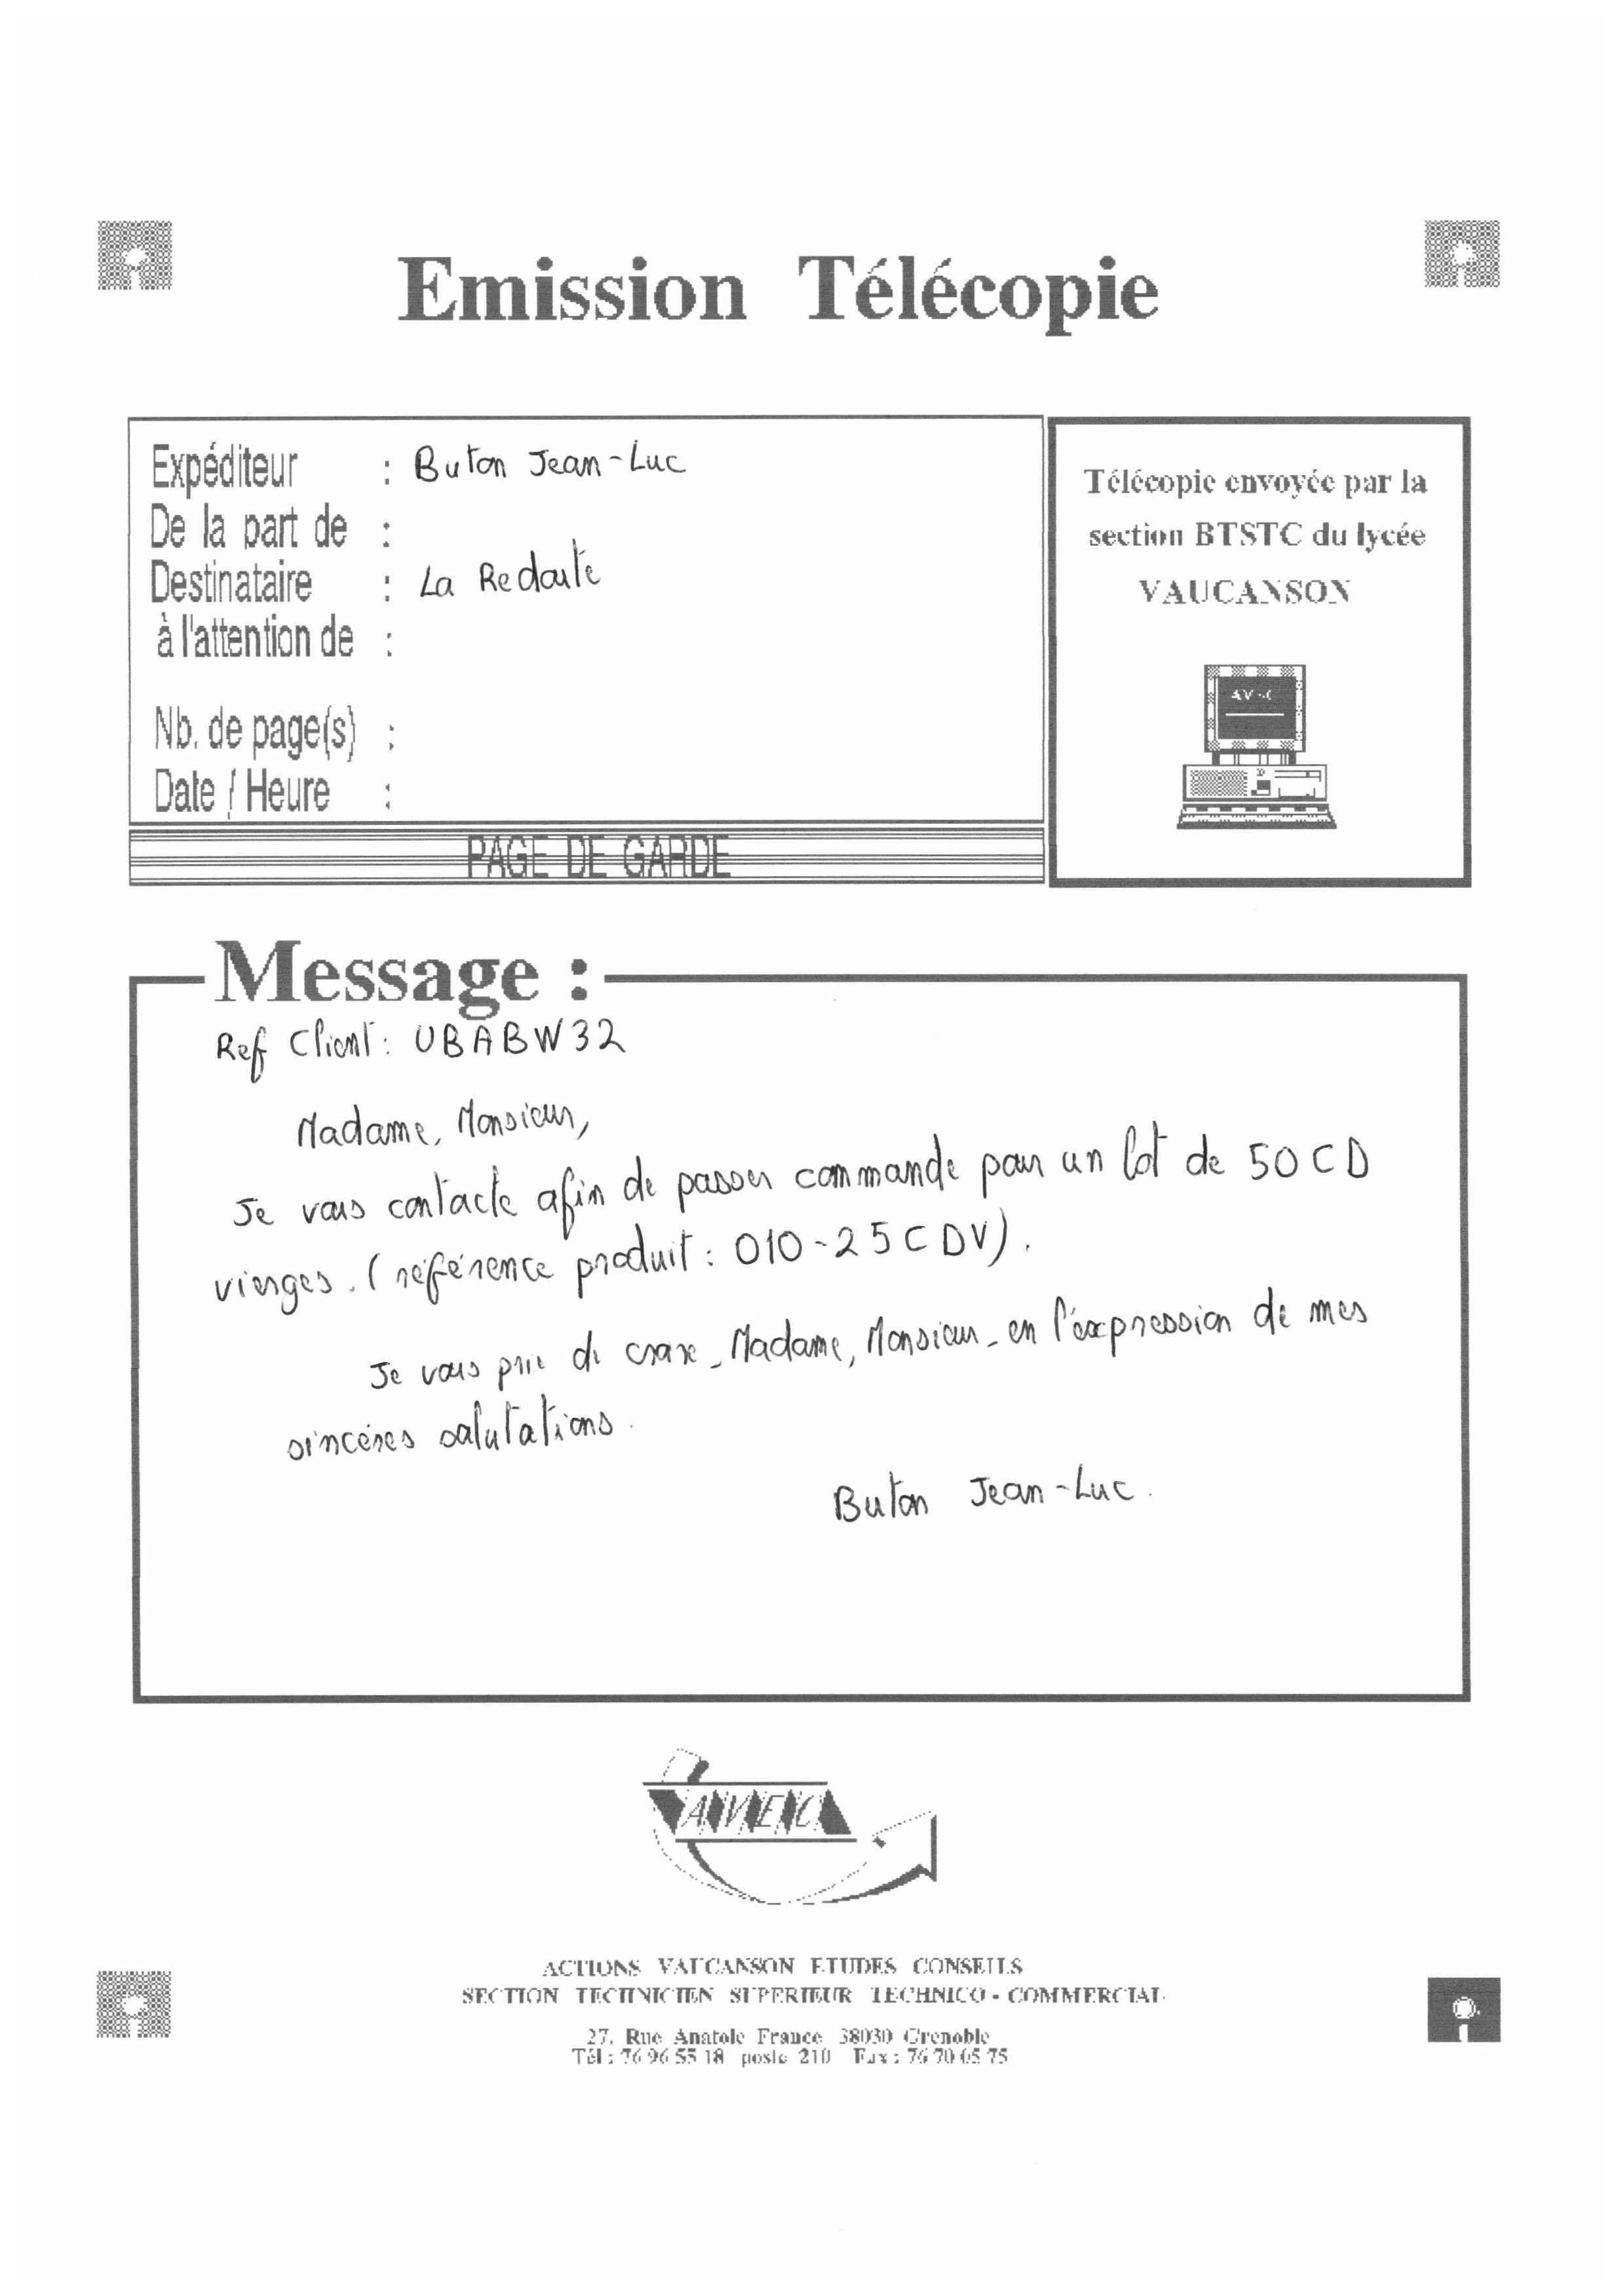 Emission Télécopie
Expéditeur : Buton Jean-Luc
De la part de :
Destinataire : La Redoute
à l'attention de :
Nb. de page(s) :
Date / Heure :
PAGE DE GARDE
Télécopie envoyée par la
section BTSTC du lycée
VAUCANSON
Message :
Ref Client : UBABW32
Madame, Monsieur,
Je vous contacte afin de passer commande pour un lot de 50 CD
vierges. (référence produit : 010-25CDV).
Je vous prie de croire, Madame, Monsieur, en l'expression de mes
sincères salutations.
Buton Jean-Luc.
AVEC
ACTIONS VAUCANSON ETUDES CONSEILS
SECTION TECHNICIEN SUPERIEUR TECHNICO - COMMERCIAL
27, Rue Anatole France 38030 Grenoble
Tél : 76 96 55 18 poste 210 Fax : 76 70 05 75